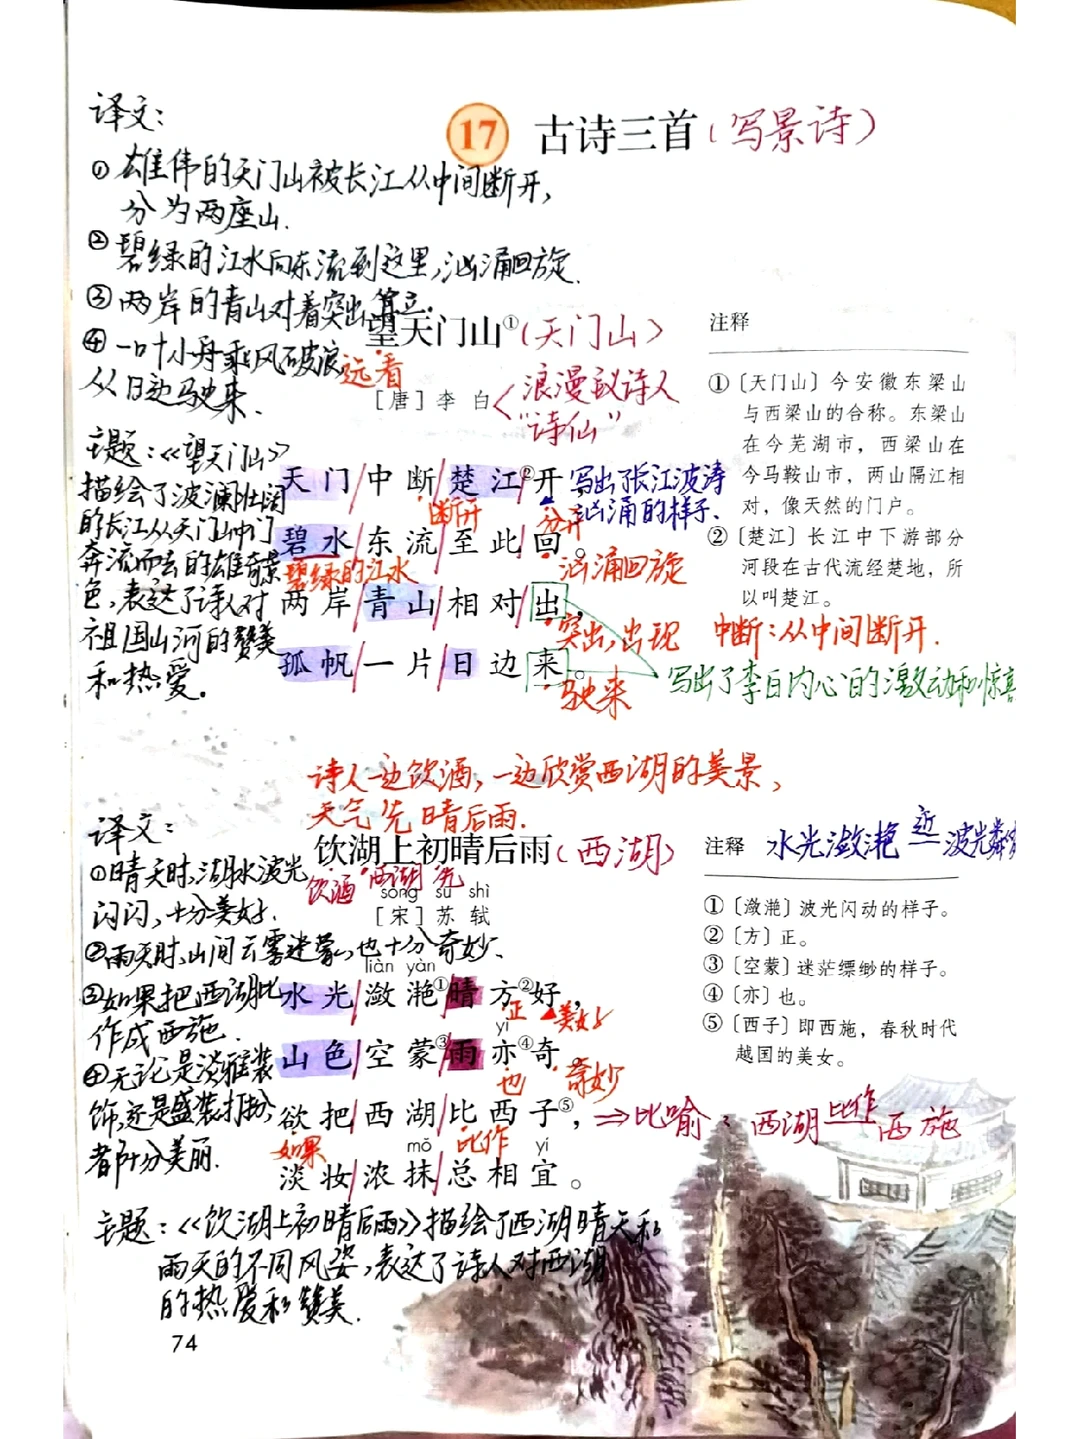 译文：
17 古诗三首（写景诗）
①雄伟的天门山被长江从中间断开，
分为两座山.
②碧绿的江水向东流到这里，汹涌回旋.
③两岸的青山对着突出耸立.
④一叶小舟乘风破浪
从日边驶来.
望天门山①（天门山）
远看
[唐] 李 白
浪漫主义诗人
“诗仙”
主题：《望天门山》
描绘了波澜壮阔
的长江从天门山中门
奔流而去的雄奇景
色，表达了诗人对
祖国山河的赞美
和热爱。
天门/中断/楚江②/开，
写出了长江波涛
汹涌的样子.
断开
分开
碧水/东流/至此/回。
碧绿的江水
汹涌回旋
两岸/青山/相对/出，
突出，出现
中断：从中间断开.
孤帆/一片/日边/来。
驶来
写出了李白内心的激动和惊喜
注释
①〔天门山〕今安徽东梁山
与西梁山的合称。东梁山
在今芜湖市，西梁山在
今马鞍山市，两山隔江相
对，像天然的门户。
②〔楚江〕长江中下游部分
河段在古代流经楚地，所
以叫楚江。
诗人一边饮酒，一边欣赏西湖的美景，
天气先晴后雨.
译文：
①晴天时，湖水波光
闪闪，十分美好.
②雨天时，山间云雾迷蒙，也十分奇妙.
③如果把西湖比
作成西施.
④无论是淡雅装
饰，还是盛装打扮，
都十分美丽.
饮湖上初晴后雨（西湖）
饮酒 西湖 先
sòng sū shì
[宋] 苏 轼
liàn yàn
水光/潋滟①/晴方②好，
正 美好
yì
山色/空蒙③/雨亦④奇。
也 奇妙
欲把/西湖/比西子⑤，
⇒比喻：西湖 比作 西施
如果 比作
mǒ yí
淡妆/浓抹/总相宜。
注释
水光潋滟 近 波光粼粼
①〔潋滟〕波光闪动的样子。
②〔方〕正。
③〔空蒙〕迷茫缥缈的样子。
④〔亦〕也。
⑤〔西子〕即西施，春秋时代
越国的美女。
主题：《饮湖上初晴后雨》描绘了西湖晴天和
雨天的不同风姿，表达了诗人对西湖
的热爱和赞美.
74